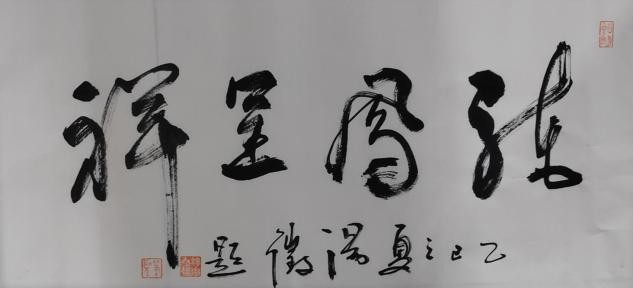 龍鳳呈祥
乙巳之夏湯題